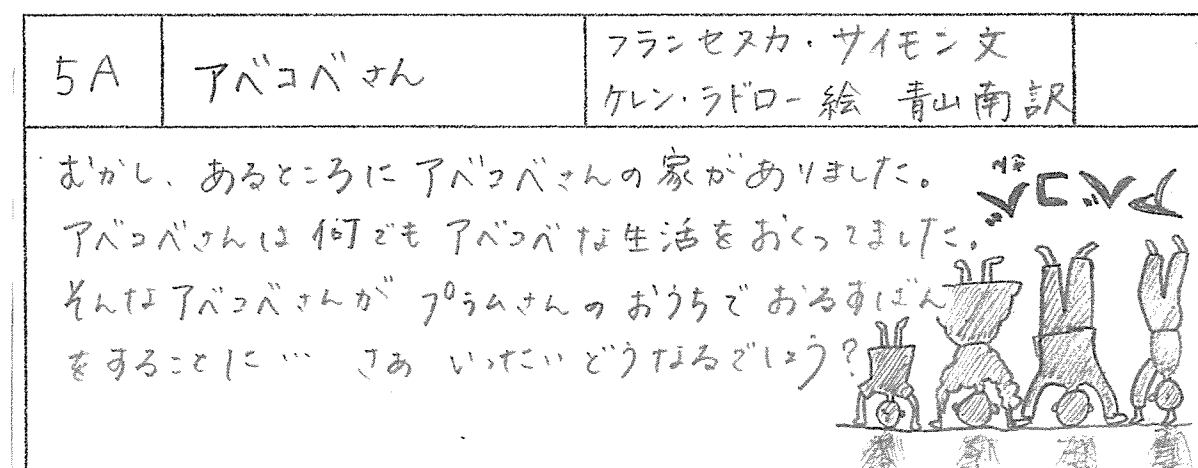 5A
アベコベさん
フランセスカ・サイモン 文
ケレン・ラドロー 絵 青山南 訳
むかし、あるところにアベコベさんの家がありました。
アベコベさんは何でもアベコベな生活をおくってました。
そんなアベコベさんがプラムさんのおうちでおるすばん
をすることに… さあ いったいどうなるでしょう?